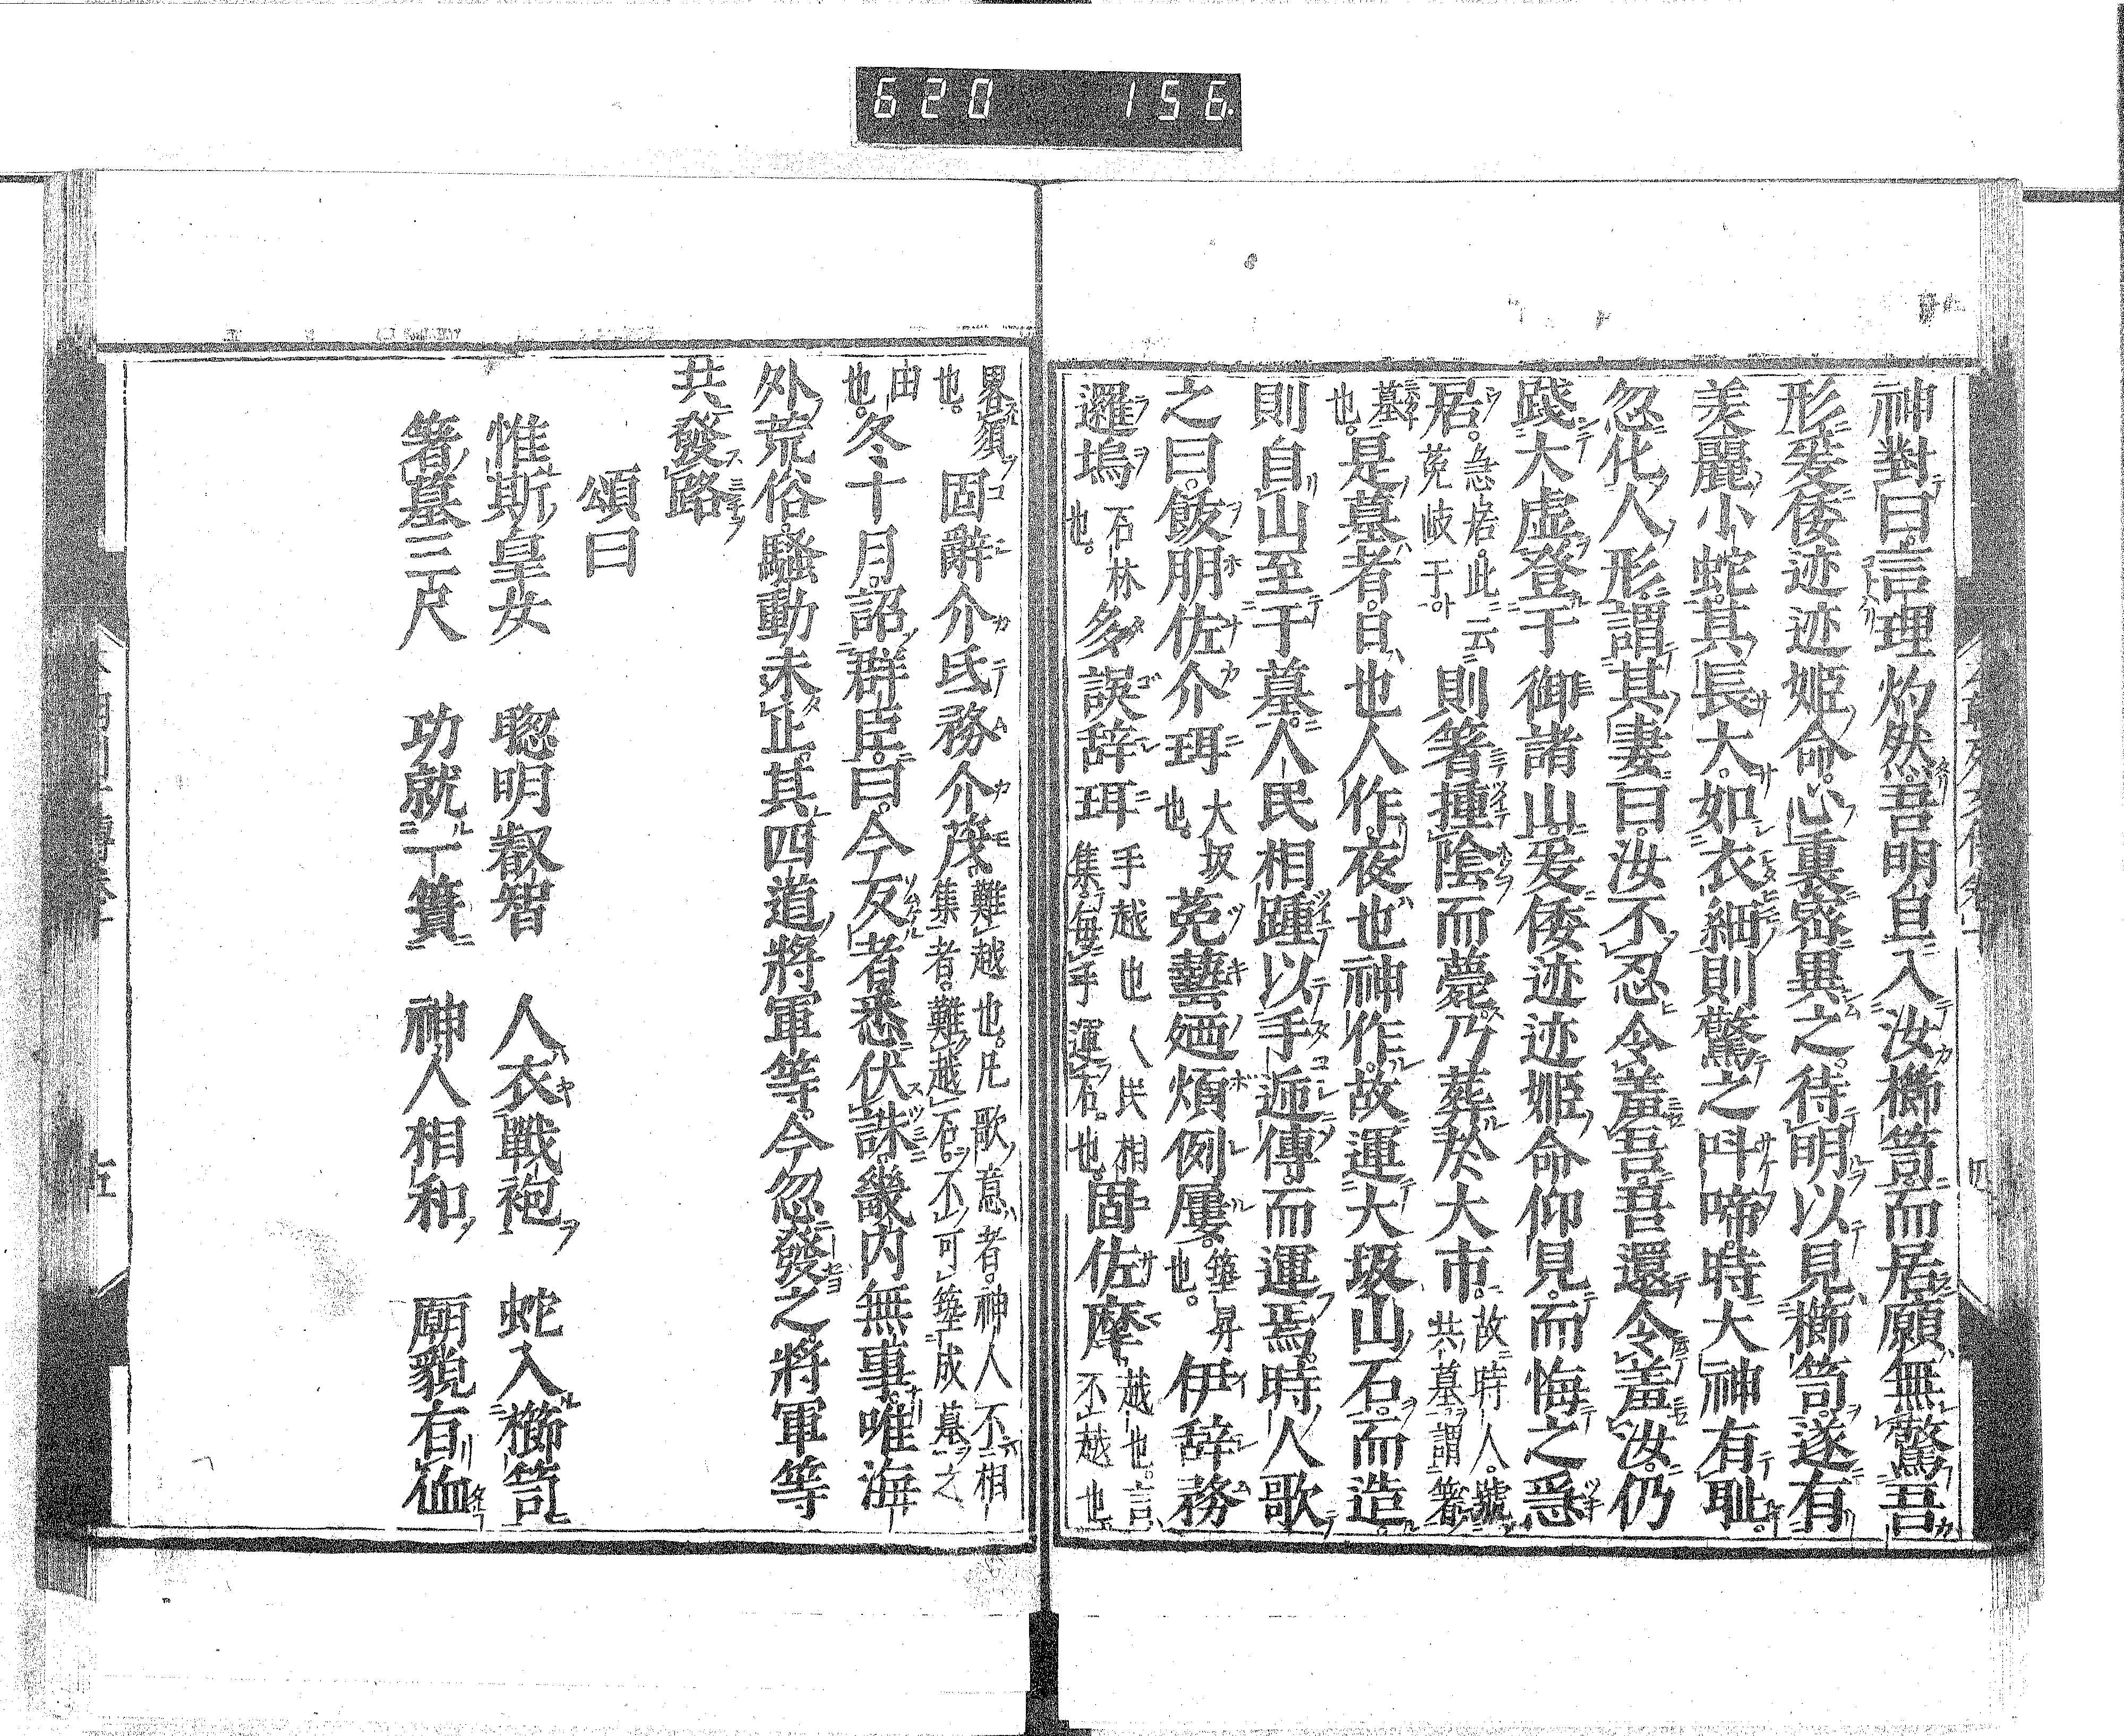 620 156
神對曰。言理灼然。吾明旦入汝櫛笥而居。願無驚吾
形。爰倭迹迹姬命。心裏密異之。待明以見櫛笥。遂有
美麗小蛇。其長大。如衣紐。則驚之叫啼。時大神有耻。
忽化人形。謂其妻曰。汝不忍令羞吾。吾還令羞汝。仍
踐大虛登于御諸山。爰倭迹迹姬命仰見。而悔之急
居。急居。此云菟岐于。則箸撞陰而薨。乃葬於大市。故時人。號共墓謂箸
墓也。是墓者。日也人作。夜也神作。故運大坂山石。而造。
則自山至于墓。人民相踵以手遞傳。而運焉。時人歌
之曰。飫朋佐介珥大坂也。菟藝廼煩例屢。築昇也。伊辞務
邏塢石林也。多誤辞珥手越也人民相集。每手運石。也。固佐摩越也。言不越也
畧須也。固辭介氐務介茂難越也。凡歌意者。神人不相集者。難越石。不可築成墓之
由也。冬十月。詔群臣。曰。今反者悉伏誅。畿內無事。唯海
外荒俗騷動未止。其四道將軍等。今忽發之。將軍等
共發路
頌曰
惟斯皇女 聰明叡智 人衣戰袍 蛇入櫛笥
箸墓三尺 功就一簣 神人相和 廟貌有侐
五